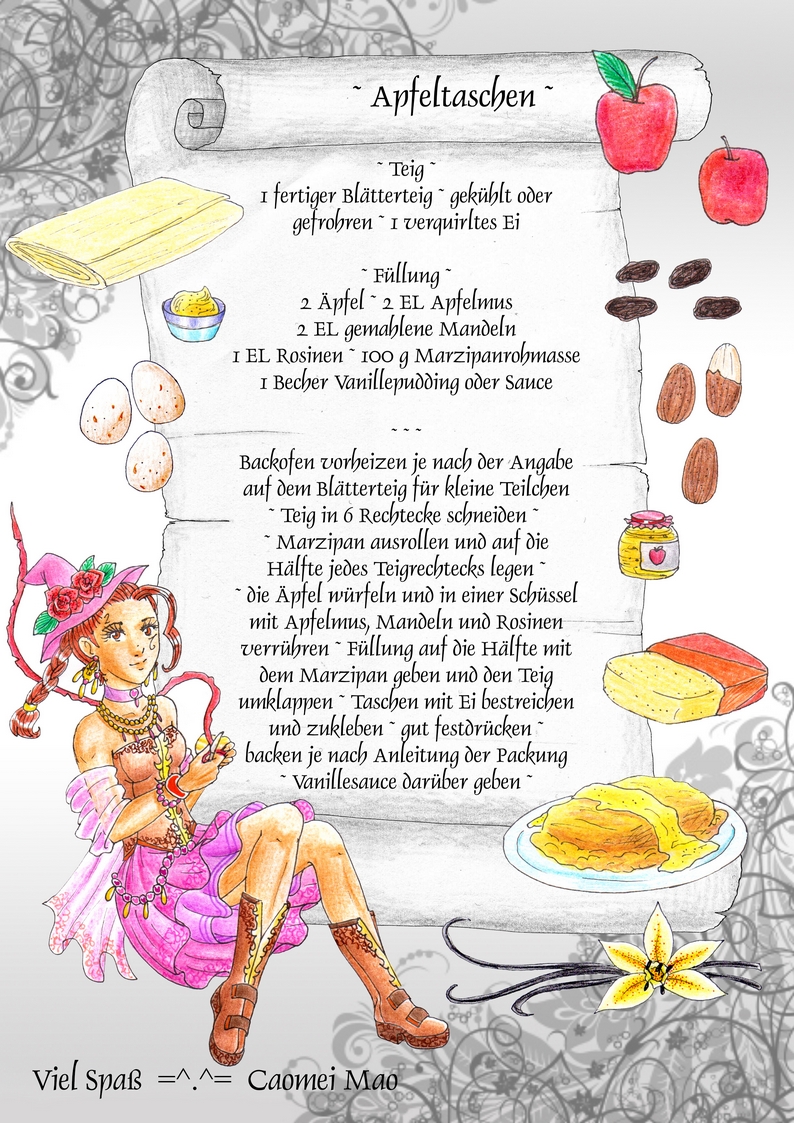 ~ Apfeltaschen ~
~ Teig ~
1 fertiger Blätterteig ~ gekühlt oder
gefrohren ~ 1 verquirltes Ei
~ Füllung ~
2 Äpfel ~ 2 EL Apfelmus
2 EL gemahlene Mandeln
1 EL Rosinen ~ 100 g Marzipanrohmasse
1 Becher Vanillepudding oder Sauce
~ ~ ~
Backofen vorheizen je nach der Angabe
auf dem Blätterteig für kleine Teilchen
~ Teig in 6 Rechtecke schneiden ~
~ Marzipan ausrollen und auf die
Hälfte jedes Teigrechtecks legen ~
~ die Äpfel würfeln und in einer Schüssel
mit Apfelmus, Mandeln und Rosinen
verrühren ~ Füllung auf die Hälfte mit
dem Marzipan geben und den Teig
umklappen ~ Taschen mit Ei bestreichen
und zukleben ~ gut festdrücken ~
backen je nach Anleitung der Packung
~ Vanillesauce darüber geben ~
Viel Spaß =^.^= Caomei Mao